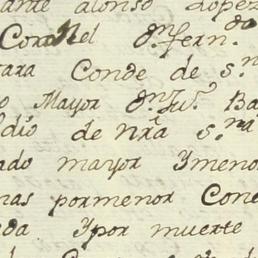 ante alonso Lopez
Coronel Dn. fern.do
tara Conde de s.n
o Mayor Dn. Ju.o Ba
dio de Nrã s.ra
ado mayor Ymenor
mas pormenor Con
da Ypor muerte